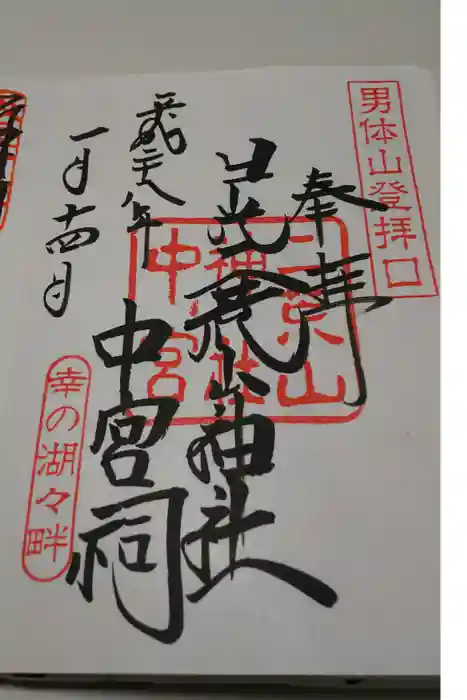 男体山登拝口
奉拝
日光二荒山神社
中宮祠
平成二十八年
一月十四日
幸の湖々畔
二荒山
神社
中宮